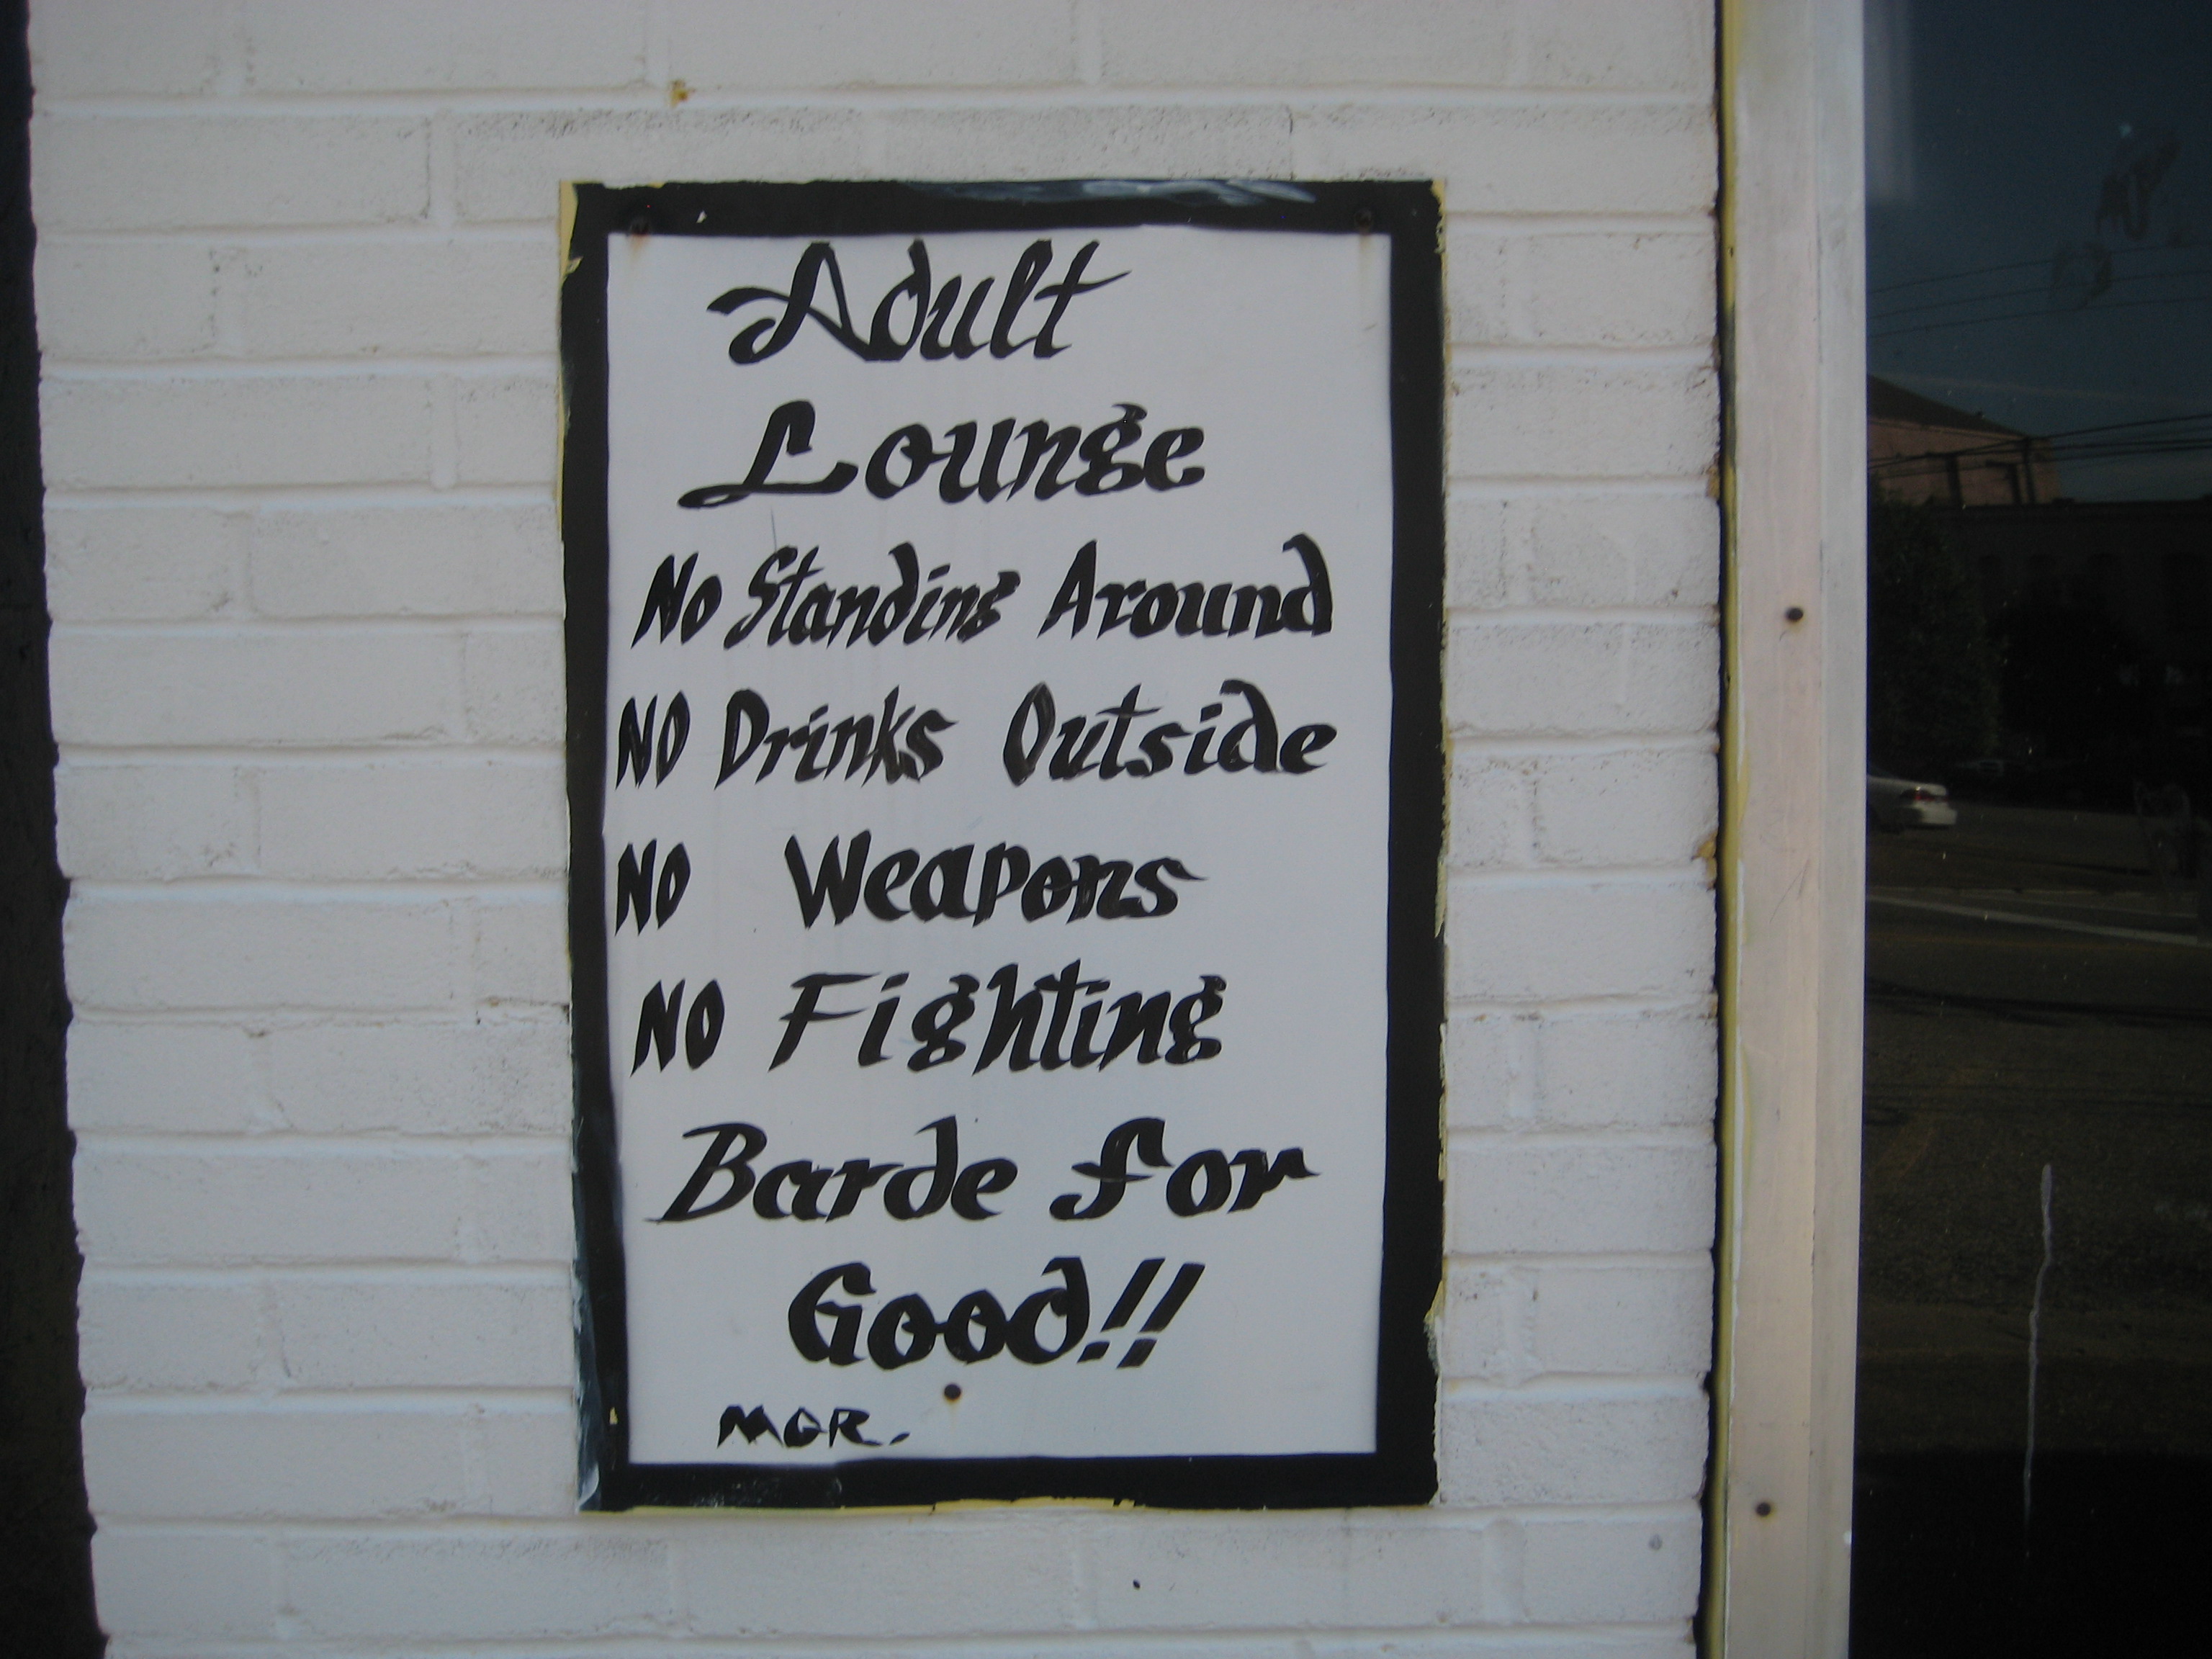 Adult
Lounge
No Standing Around
NO Drinks Outside
NO Weapons
NO Fighting
Barde for
Good!!
MGR.